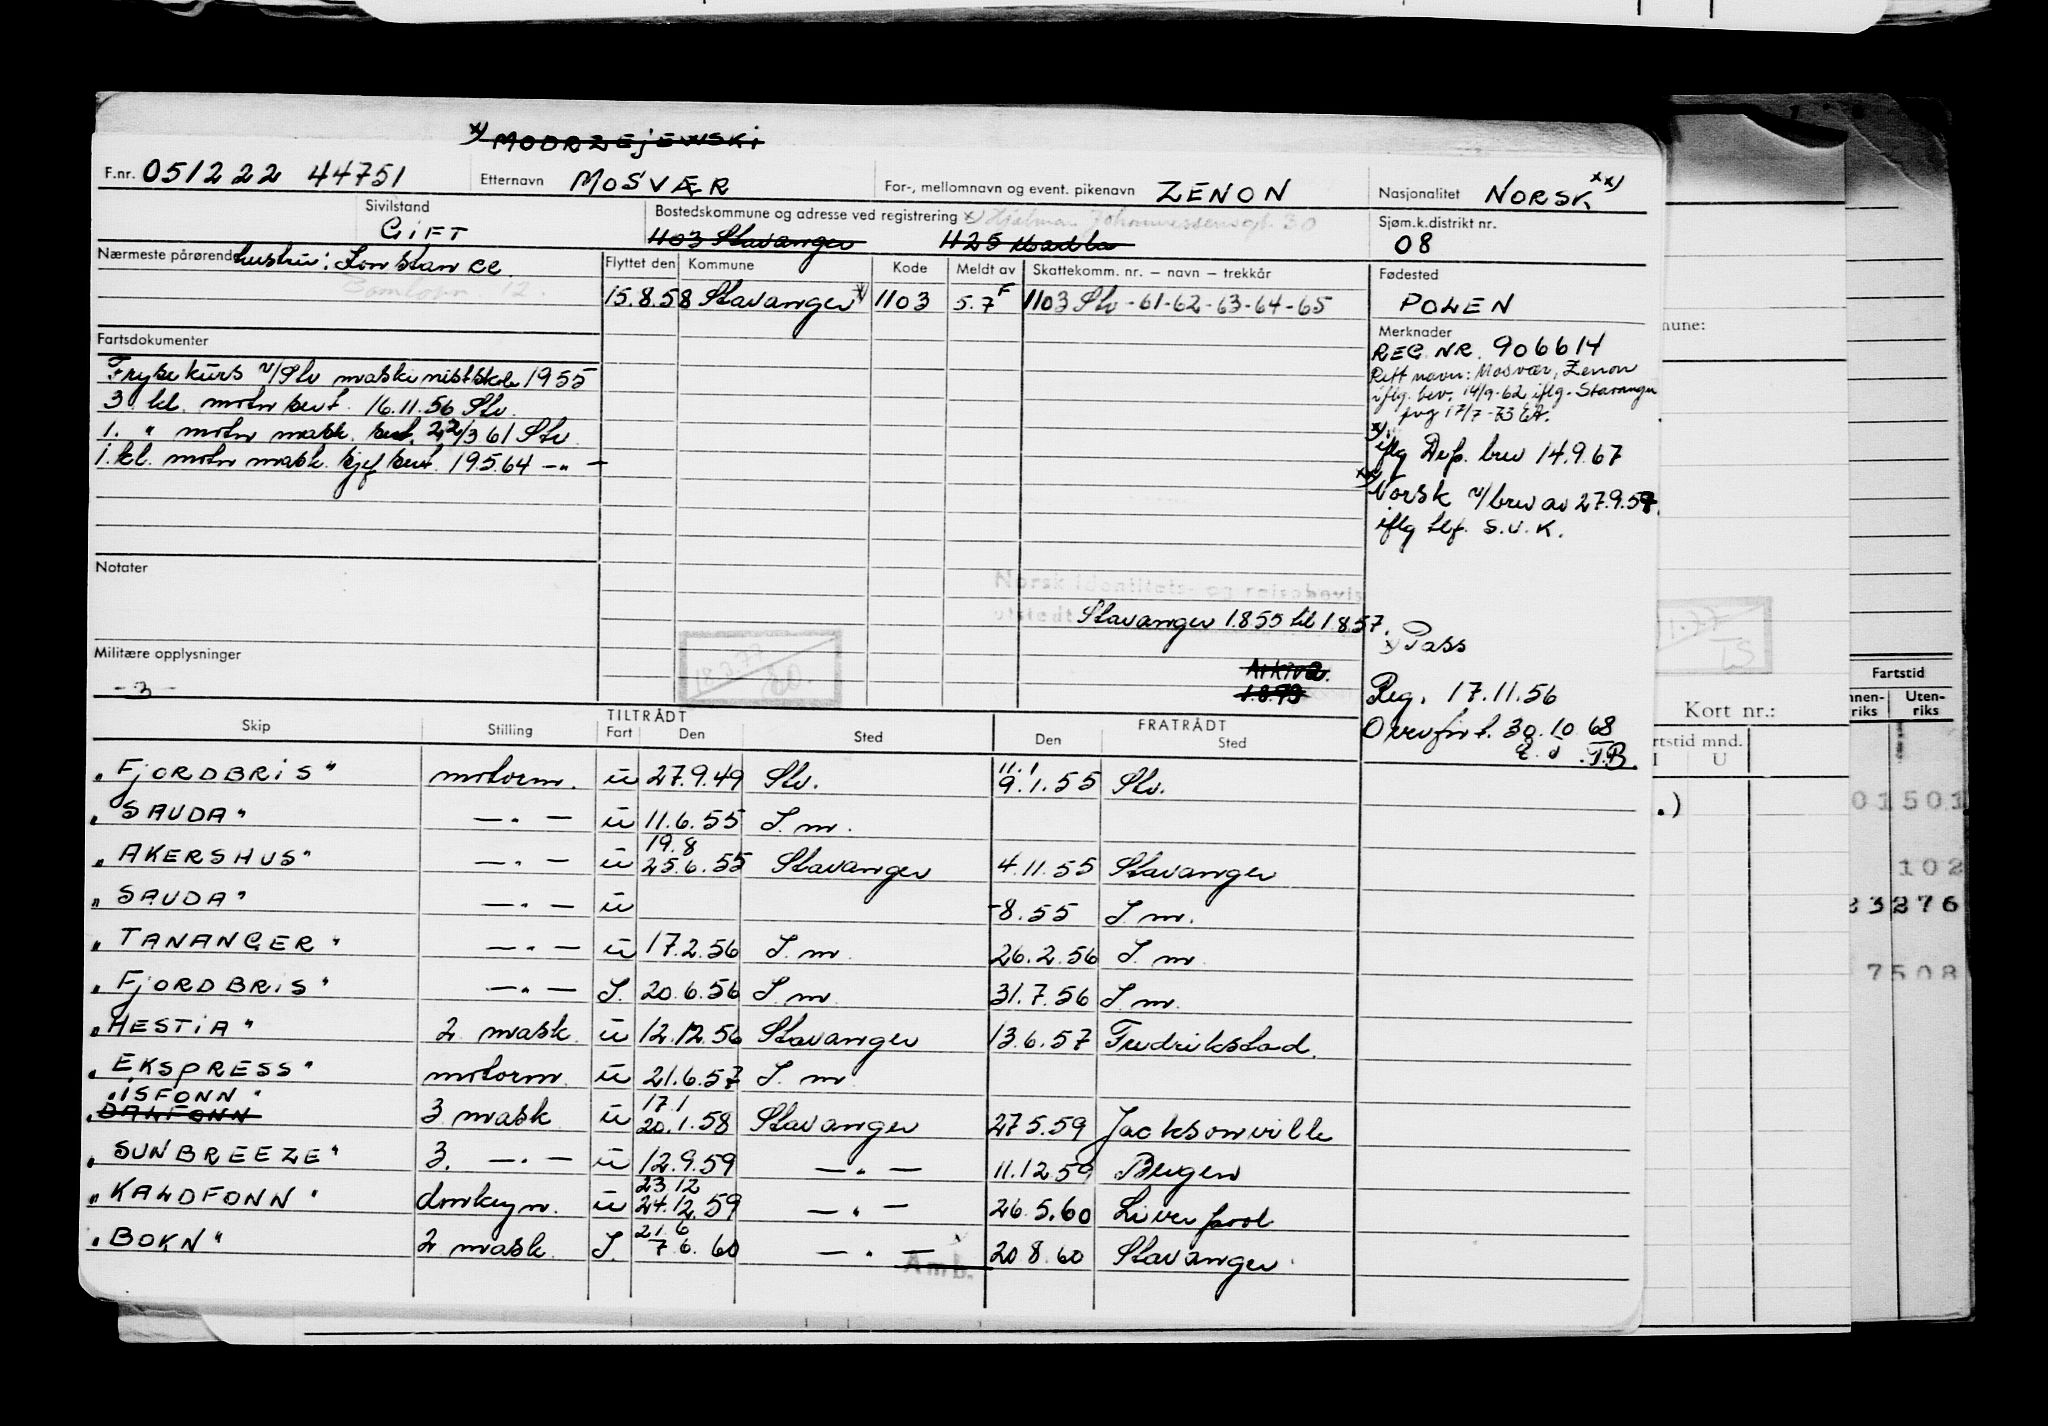 x) MODRZEjEWSKi
F.nr. 051222 44751 Etternavn MOSVÆR For-, mellomnavn og event. pikenavn ZENON Nasjonalitet NORSK xx)
Sivilstand GiFT Bostedskommune og adresse ved registrering x) Hjalmar Johannessensgt. 30 Sjøm.k.distrikt nr.
1103 Stavanger 1125 Madla 08
Nærmeste pårørende hustru: Konstance
12.
Flyttet den Kommune Kode Meldt av Skattekomm. nr. – navn – trekkår Fødested
15.8.58 Stavanger x) 1103 5.7 F 1103 Stv - 61-62-63-64-65 POLEN
Fartsdokumenter
Frysekurs v/Stv maskinistskole 1955
3 kl. motor sert. 16.11.56 Stv.
1. " motor mask. sert. 22/3 61 Stv
1. kl. motor mask. sjef sert. 19.5.64 — " —
Merknader
REG. NR. 906614
Rett navn: Mosvær, Zenon
iflg. bev. 14/9-62 iflg. Stavanger
17/7-73
x) iflg Dep. brev 14.9.67
xx) Norsk v/brev av 27.9.57.
iflg tlf. S.V.K.
Notater
Norsk identitets- og reisebevis
utstedt Stavanger 1.8.55 til 1.8.57.
x) Pass
Militære opplysninger
- 3 -
18.3.77
Arkiv2.
1.8.73
Reg. 17.11.56
Overført. 30.10.68
T.B.
Skip Stilling TILTRÅDT Fart Den Sted FRATRÅDT Den Sted
"FjORDBRiS" motorm. u 27.9.49 Stv. 11.1 9.1.55 Stv.
"SAUDA" — " — u 11.6.55 S.m.
"AKERSHUS" — " — u 19.8 25.6.55 Stavanger 4.11.55 Stavanger
"SAUDA" — " — u -8.55 S.m.
"TANANGER" — " — u 17.2.56 S.m. 26.2.56 S.m.
"FjORDBRiS" — " — S. 20.6.56 S.m. 31.7.56 S.m.
"HESTiA" 2 mask. u 12.12.56 Stavanger 13.6.57 Fredrikstad.
"EKSPRESS" motorm. u 21.6.57 S.m.
"iSFONN"
"DALFONN" 3 mask u 17.1 20.1.58 Stavanger 27.5.59 Jacksonville
"SUNBREEZE" 3. — " — u 12.9.59 — " — 11.12.59 Bergen
"KALDFONN" donkeym. u 23.12 24.12.59 — " — 26.5.60 Liverpool
"BOKN" 2 mask. S. 21.6 7.6.60 — " — 20.8.60 Stavanger
Amb.
mune:
Kort nr.:
rtstid mnd.
I U
.)
Fartstid
nnen-riks Uten-riks
01501
102
23276
7508